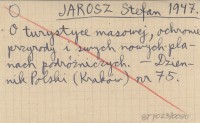 JAROSZ Stefan 1947.
O turystyce masowej, ochronie
przyrody i swych nowych pla-
nach podróżniczych. — Dzien-
nik Polski (Kraków) nr 75.